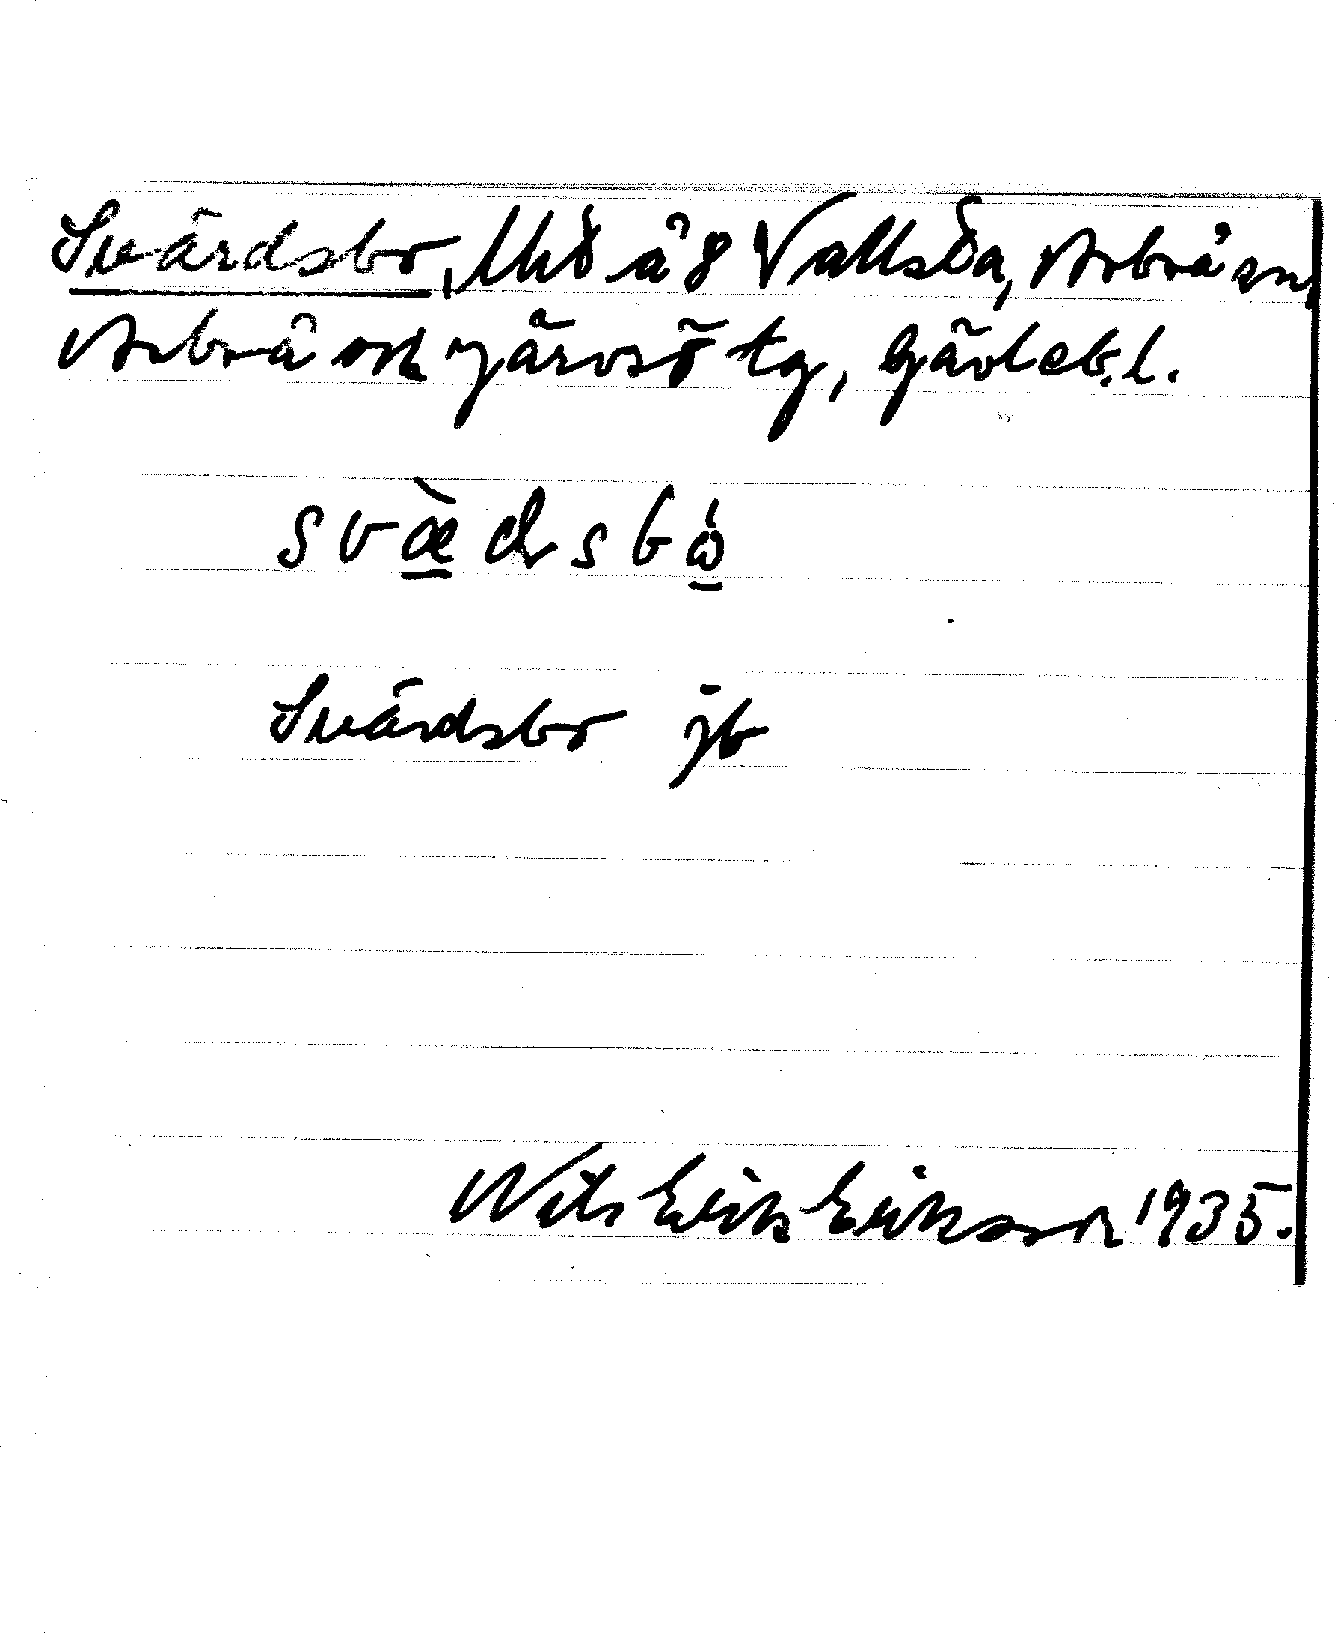 Svärdsbo, Uhö å 8 Vallsta, Arbrå sn,
Arbrå och Järvsö tg, Gävleb. l.
svæ̀dsbω
Svärdsbo jb
Nils Erik Eriksson 1935.